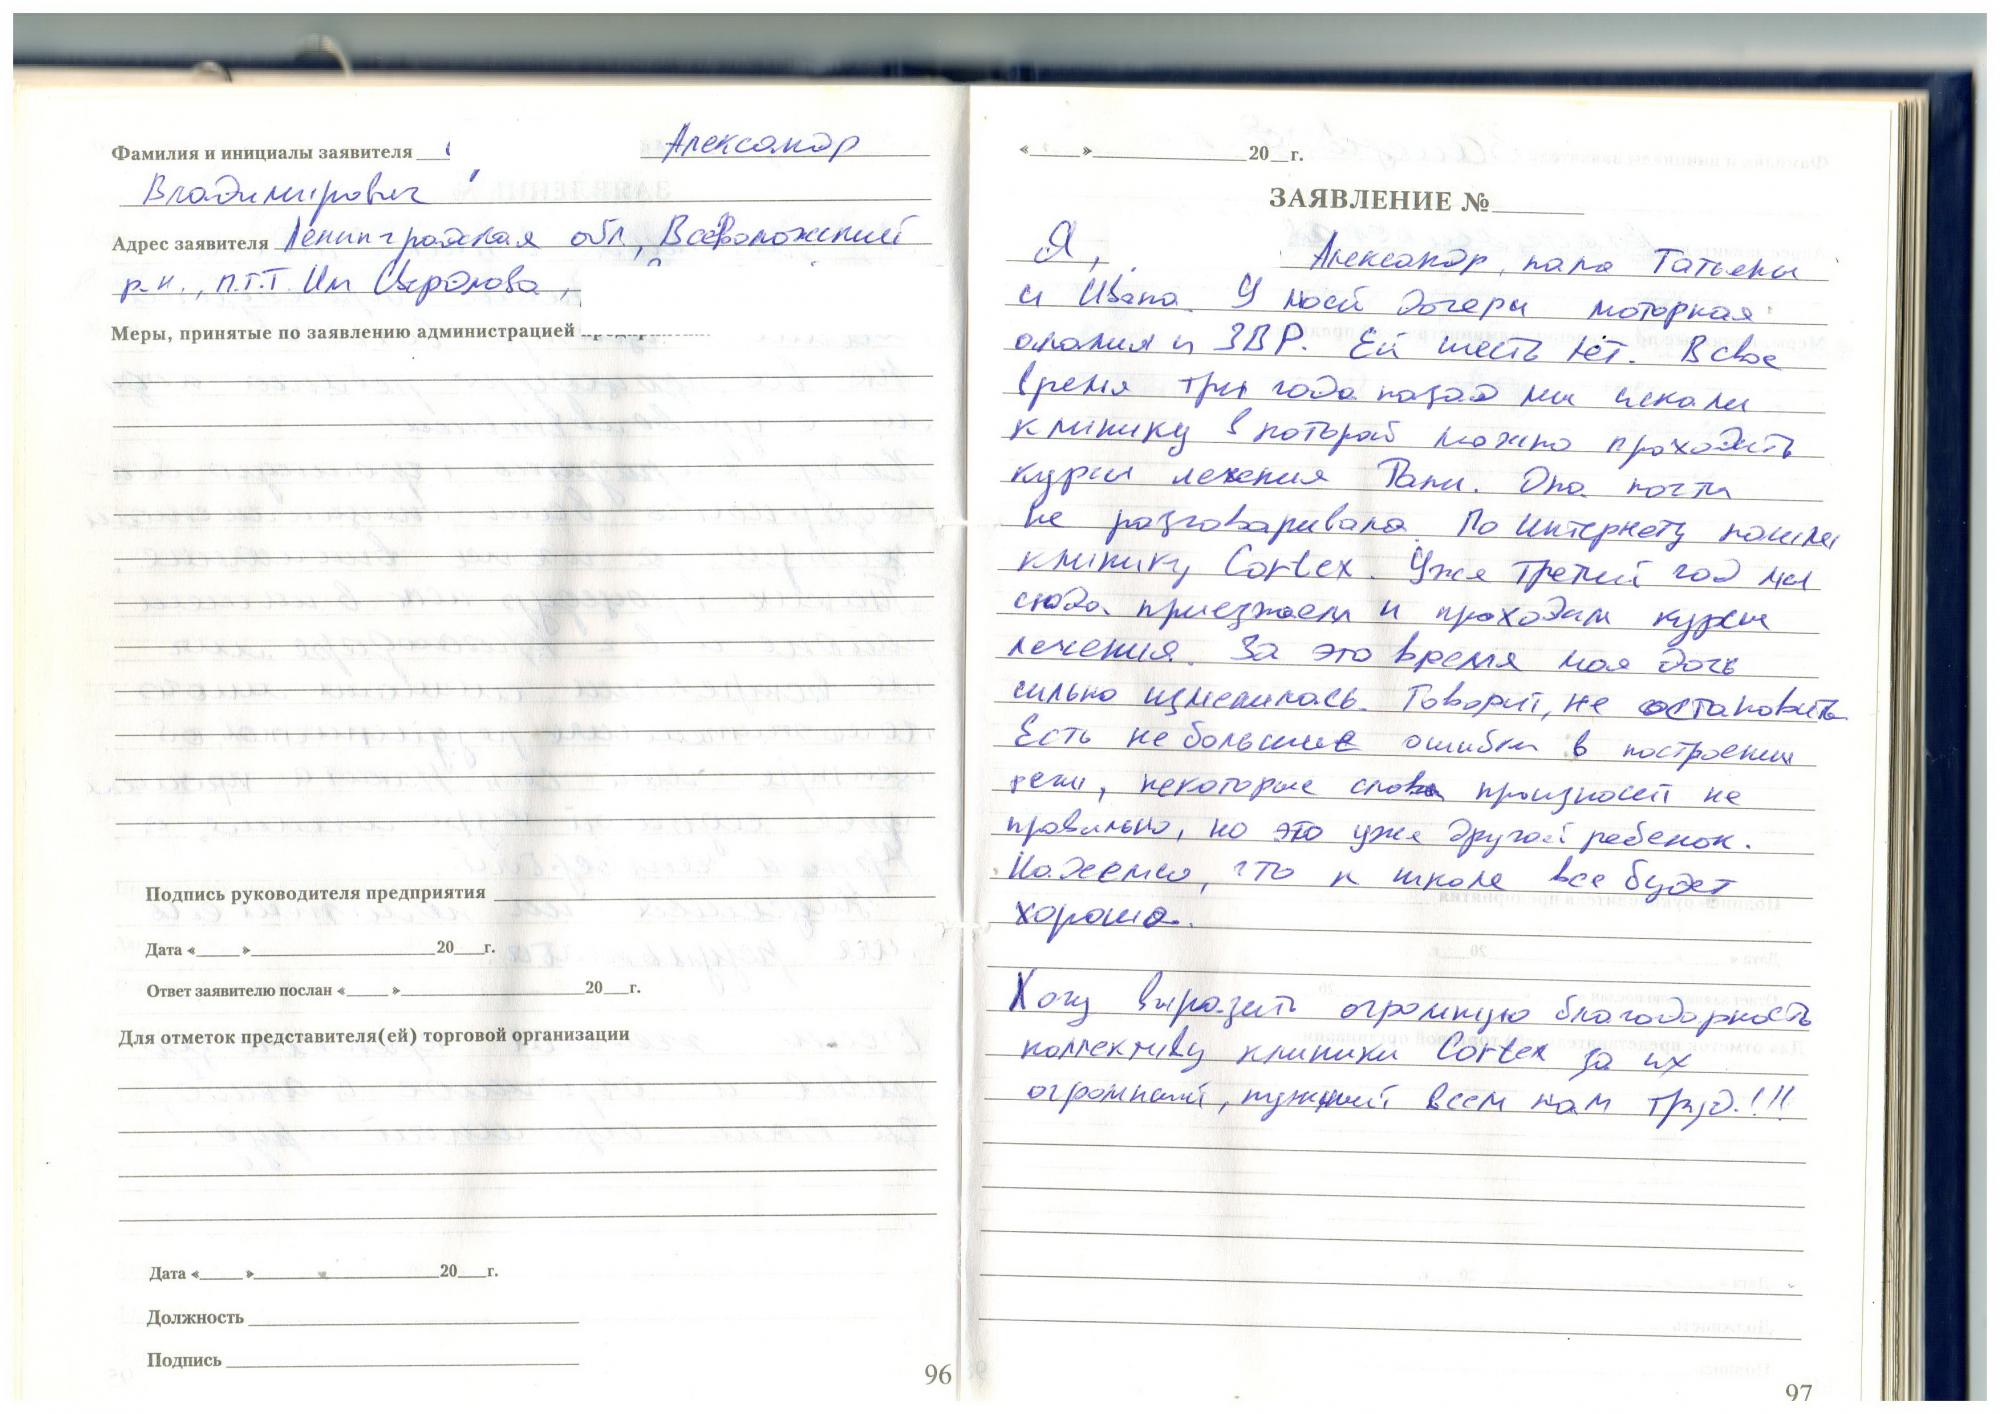 Фамилия и инициалы заявителя Александр
Владимирович
Адрес заявителя Ленинградская обл, Всеволожский
р.н., п.г.т. Им Свердлова,
Меры, принятые по заявлению администрацией
Подпись руководителя предприятия
Дата «____»____________20___г.
Ответ заявителю послан «____»____________20___г.
Для отметок представителя(ей) торговой организации
Дата «____»____________20___г.
Должность
Подпись
96
«____»____________20__г.
ЗАЯВЛЕНИЕ №
Я, Александр, папа Татьяны
и Ивана. У моей дочери моторная
алалия и ЗВР. Ей шесть лет. В свое
время три года назад мы искали
клинику в которой можно проходить
курсы лечения Тани. Она почти
не разговаривала. По Интернету нашли
клинику Cortex. Уже третий год мы
сюда приезжаем и проходим курсы
лечения. За это время моя дочь
сильно изменилась. Говорит, не остановить
Есть небольшие ошибки в построении
речи, некоторые слова произносит не
правильно, но это уже другой ребенок.
Надеемся, что к школе все будет
хорошо.
Хочу выразить огромную благодарность
коллективу клиники Cortex за их
огромный, нужный всем нам труд!!!
97